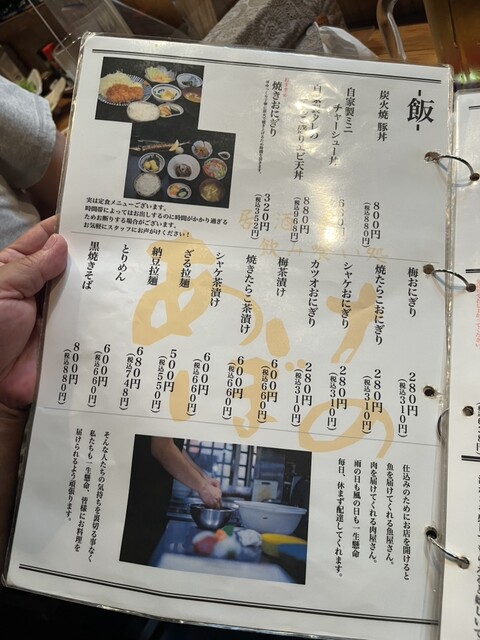 飯
炭火焼 豚丼
800円
(税込880円)
自家製ミニ
チャーシュー丼
自家製タレの
盛りエビ天丼
880円
(税込968円)
焼きおにぎり
320円
(税込352円)
実は定食メニューございます。
時間帯によってはお出しするのに時間がかかり過ぎる
ためお断りする場合がございます。
お気軽にスタッフにお声がけください!
梅おにぎり
280円
(税込310円)
焼たらこおにぎり
280円
(税込310円)
シャケおにぎり
280円
(税込310円)
カツオおにぎり
280円
(税込310円)
梅茶漬け
600円
(税込660円)
焼きたらこ茶漬け
600円
(税込660円)
シャケ茶漬け
600円
(税込660円)
ざる拉麺
500円
(税込550円)
納豆拉麺
680円
(税込748円)
とりめん
600円
(税込660円)
黒焼きそば
800円
(税込880円)
あけぼの
仕込みのためにお店を開けると
魚を届けてくれる魚屋さん。
肉を届けてくれる肉屋さん。
雨の日も風の日も一生懸命
毎日、休まず配達してくれます。
そんな人たちの気持ちを裏切る事なく
私たちも一生懸命、皆様にお料理を
届けられるよう頑張ります。